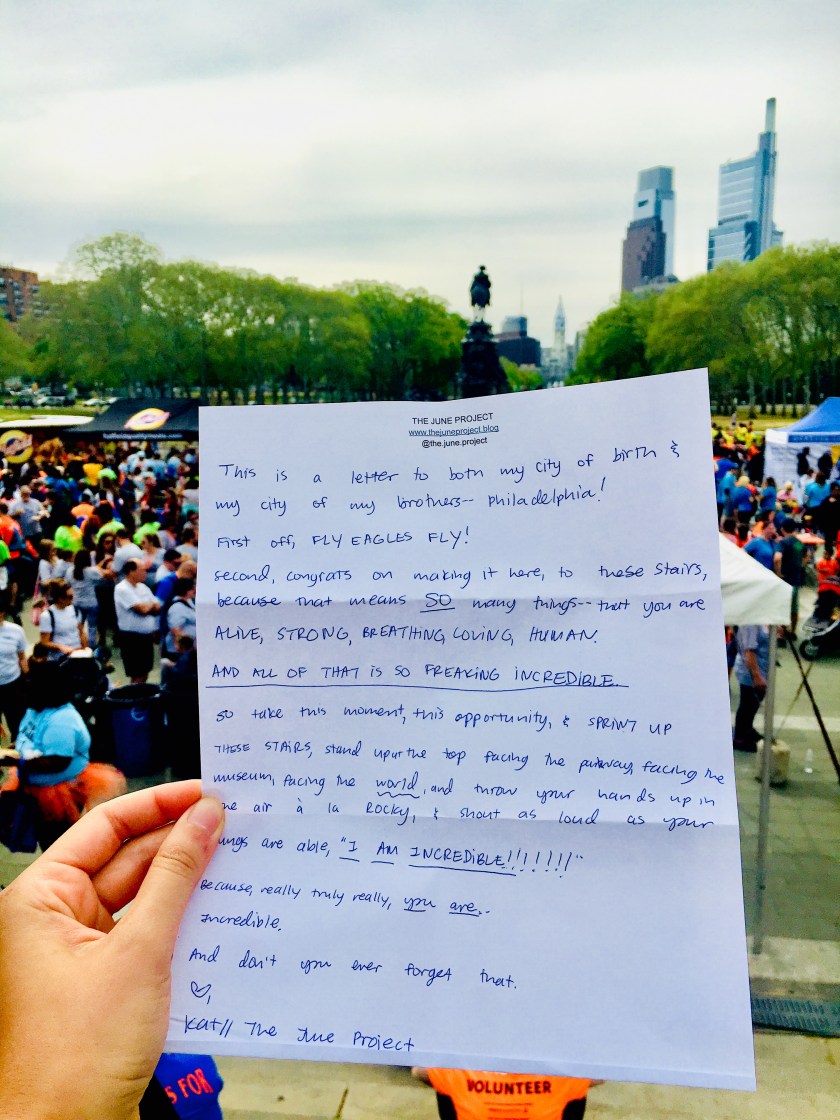 THE JUNE PROJECT
www.thejuneproject.blog
@the.june.project
This is a letter to both my city of birth &
my city of my brothers-- philadelphia!
First off, FLY EAGLES FLY!
second, congrats on making it here, to these stairs,
because that means SO many things-- that you are
ALIVE, STRONG, BREATHING, LOVING, HUMAN.
AND ALL OF THAT IS SO FREAKING INCREDIBLE.
so take this moment, this opportunity, & SPRINT UP
THESE STAIRS, stand upon the top facing the parkway, facing the
museum, facing the world, and throw your hands up in
the air à la ROCKY, & shout as loud as your
lungs are able, "I AM INCREDIBLE!!!!!!!"
Because, really truly really, you are..
Incredible.
And don't you ever forget that.
♡,
Kat// The June Project
S FOR
VOLUNTEER